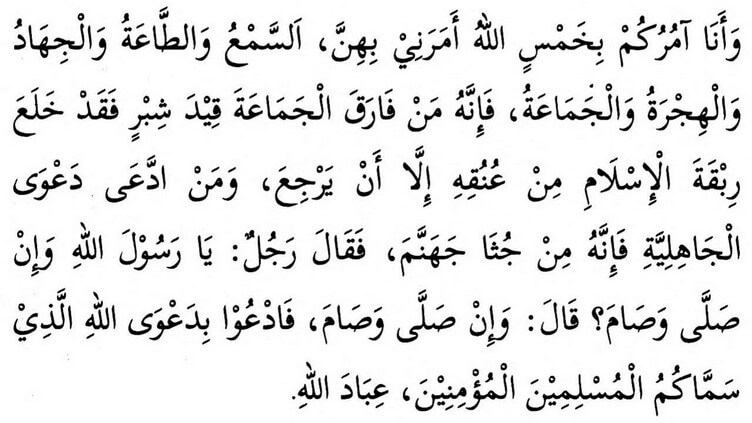 وَأَنَا آمُرُكُمْ بِخَمْسٍ اللهُ أَمَرَنِيْ بِهِنَّ، اَلسَّمْعُ وَالطَّاعَةُ وَالْجِهَادُ
وَالْهِجْرَةُ وَالْجَمَاعَةُ، فَإِنَّهُ مَنْ فَارَقَ الْجَمَاعَةَ قِيْدَ شِبْرٍ فَقَدْ خَلَعَ
رِبْقَةَ الْإِسْلَامِ مِنْ عُنُقِهِ إِلَّا أَنْ يَرْجِعَ، وَمَنْ ادَّعَى دَعْوَى
الْجَاهِلِيَّةِ فَإِنَّهُ مِنْ جُثَا جَهَنَّمَ، فَقَالَ رَجُلٌ: يَا رَسُوْلَ اللهِ وَإِنْ
صَلَّى وَصَامَ؟ قَالَ: وَإِنْ صَلَّى وَصَامَ، فَادْعُوْا بِدَعْوَى اللهِ الَّذِيْ
سَمَّاكُمُ الْمُسْلِمِيْنَ الْمُؤْمِنِيْنَ، عِبَادَ اللهِ.